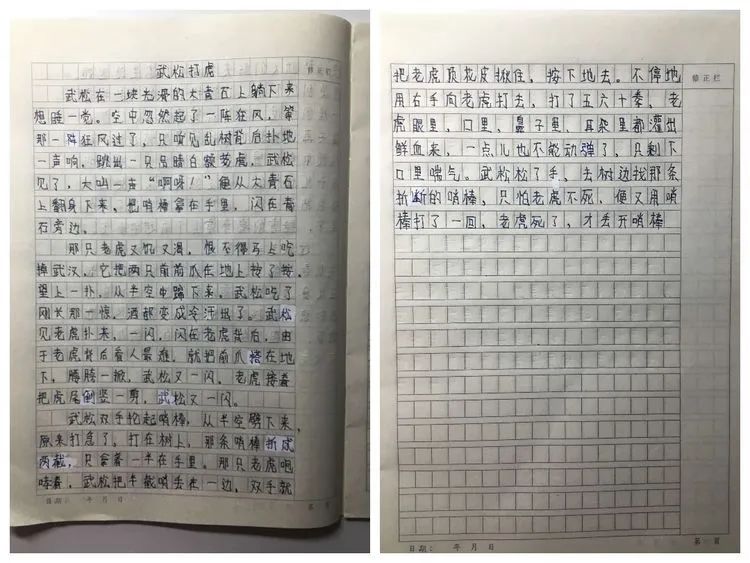 武松打虎
修正栏
武松在一块光滑的大青石上躺下来
想睡一觉。空中忽然起了一阵狂风，
那一阵狂风过了，只听见乱树背后扑地
一声响，跳出一只吊睛白额老虎，武松
见了，大叫一声“啊呀！”便从大青石
上翻身下来，把哨棒拿在手里，闪在青
石旁边。
那只老虎又饥又渴，恨不得马上吃
掉武汉，它把两只前爪在地上按了按，
望上一扑，从半空中蹿下来。武松吃了
那一惊，酒都变成冷汗出了。武松
见老虎扑来，一闪，闪在老虎背后，由
于老虎背后看人最难，就把前爪搭在地
下，腰胯一掀，武松又一闪。老虎接着
把虎尾倒竖一剪，武松又一闪。
武松双手轮起哨棒，从半空劈下来，
原来打急了，打在树上，那条哨棒折成
两截，只拿着一半在手里。那只老虎咆
哮着，武松把半截哨丢在一边，双手就
日期： 年 月 日
第 页
把老虎顶花皮揪住，按下地去。不停地
修正栏
用右手向老虎打去，打了五六十拳，老
虎眼里，口里，鼻子里，耳朵里都灌出
鲜血来，一点儿也不能动弹了，只剩下
口里喘气。武松松了手，去树边找那条
折断的哨棒，只怕老虎不死，便又用哨
棒打了一回，老虎死了，才丢开哨棒
日期： 年 月 日
第 页